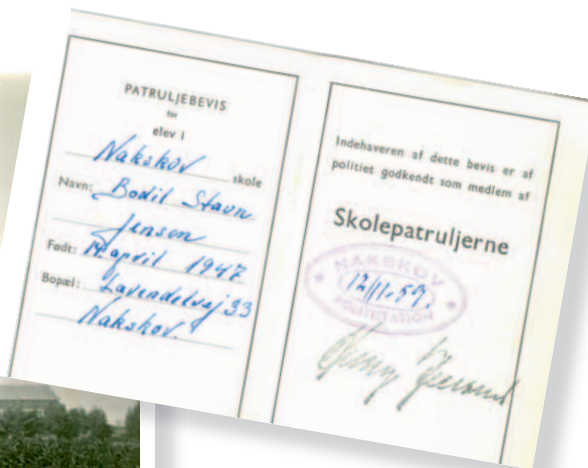 PATRULJEBEVIS
for
elev i
Nakskov skole
Navn: Bodil Stavn
Jensen
Født: 14. april 1947
Bopæl: Lavendelvej 33
Nakskov.
Indehaveren af dette bevis er af
politiet godkendt som medlem af
Skolepatruljerne
NAKSKOV
12/11-59.
POLITISTATION